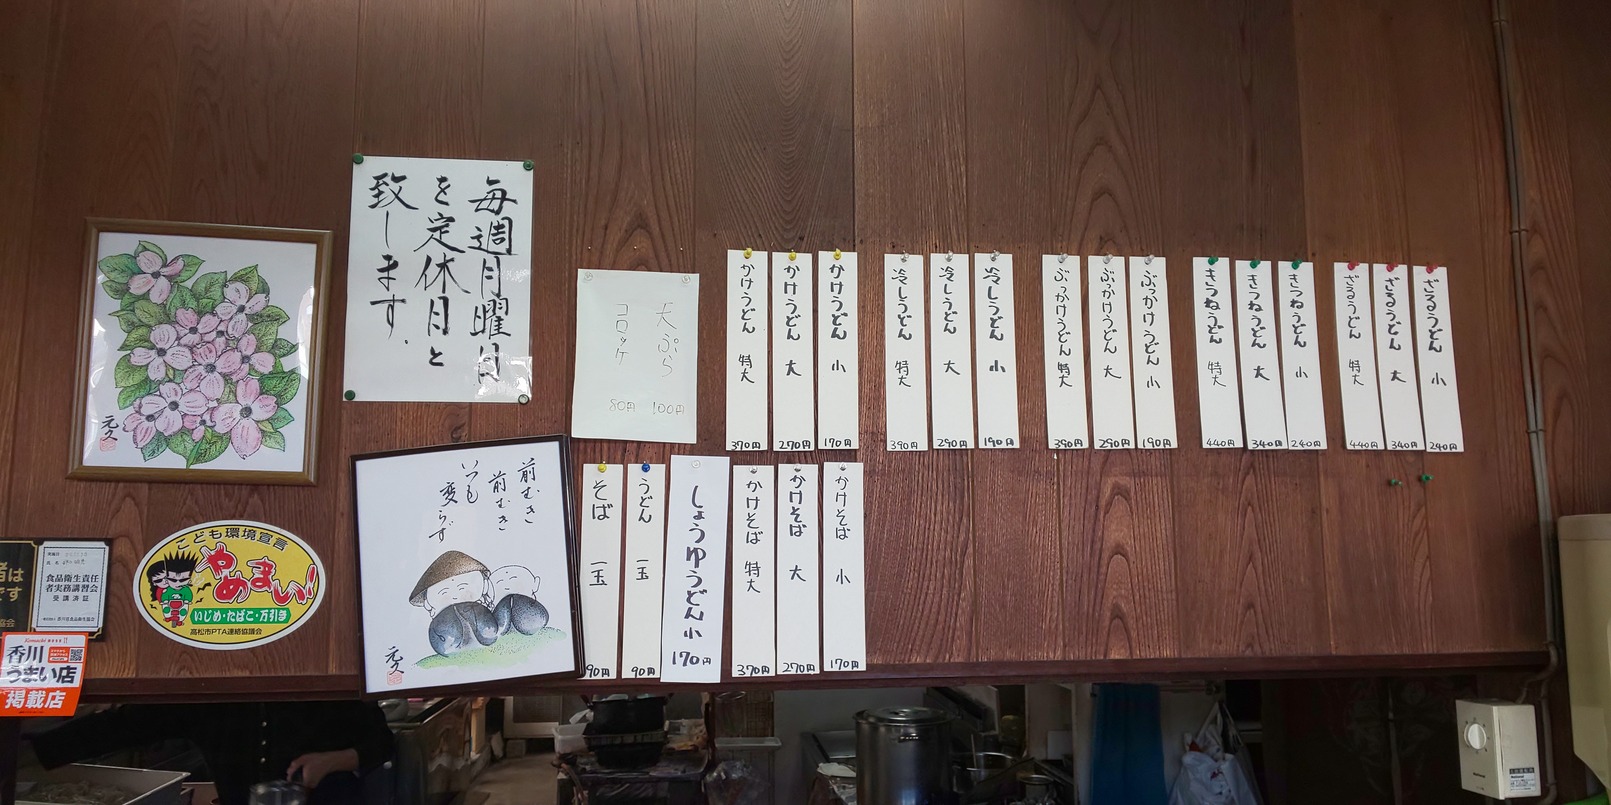 毎週月曜日
を定休日と
致します.
元久
天ぷら 100円
コロッケ 80円
ざるうどん 小 240円
ざるうどん 大 340円
ざるうどん 特大 440円
きつねうどん 小 240円
きつねうどん 大 340円
きつねうどん 特大 440円
ぶっかけうどん 小 190円
ぶっかけうどん 大 290円
ぶっかけうどん 特大 390円
冷しうどん 小 190円
冷しうどん 大 290円
冷しうどん 特大 390円
かけうどん 小 170円
かけうどん 大 270円
かけうどん 特大 370円
かけそば 小 170円
かけそば 大 270円
かけそば 特大 370円
しょうゆうどん 小 170円
うどん 一玉 90円
そば 一玉 90円
前むき
前むき
いつも
変らず
元久
こども環境宣言
やめまい!
いじめ・たばこ・万引き
高松市PTA連絡協議会
食品衛生責任
者実務講習会
受講済証
香川
うまい店
掲載店